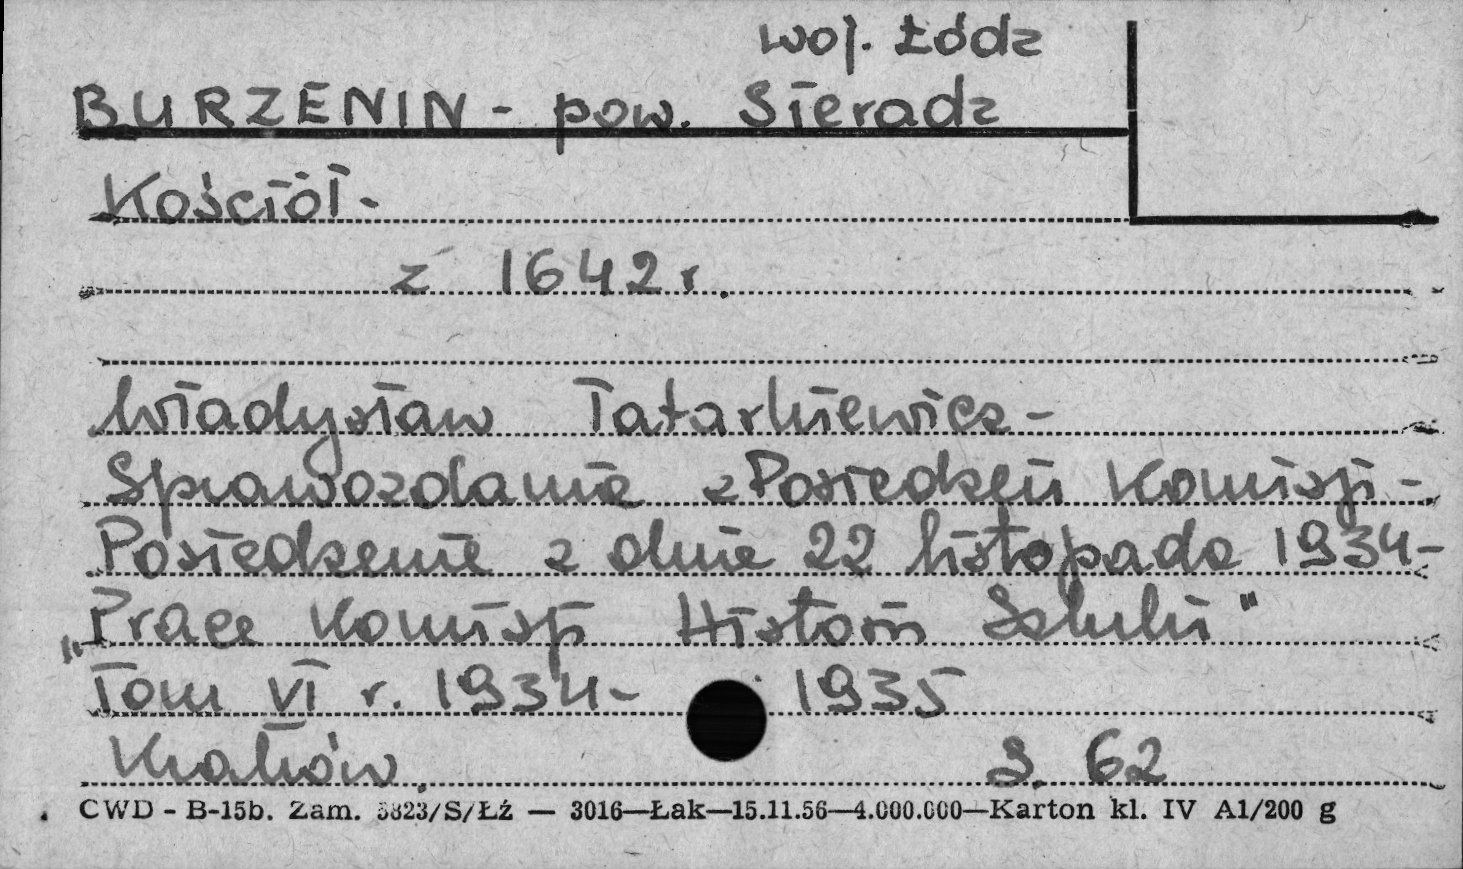 woj. Łódz
BURZENIN - pow. Sieradz
Kościół -
z 1642 r.
Władysław Tatarkiewicz -
Sprawozdanie z Posiedzeń Komisji -
Posiedzenie z dnia 22 listopada 1934 -
„Prace Komisji Historii Sztuki"
Tom VI r. 1934 - 1935
Kraków. S. 62
CWD - B-15b. Zam. 5823/S/Łż — 3016—Łak—15.11.56—4.000.000—Karton kl. IV A1/200 g